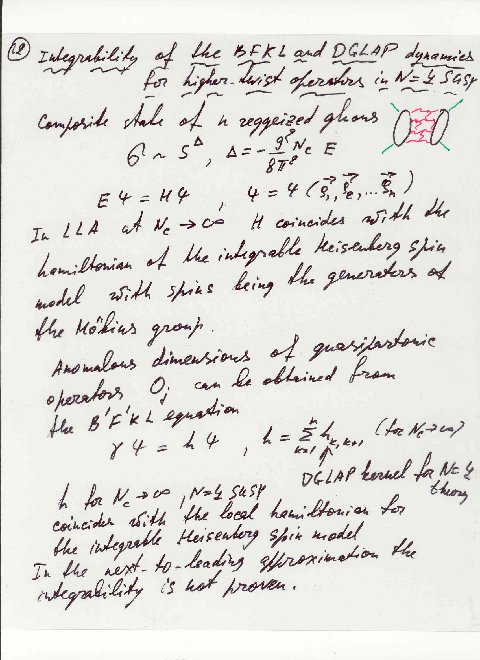 12 Integrability of the BFKL and DGLAP dynamics
for higher-twist operators in N=4 SUSY
Composite state of n reggeized gluons
σ ~ S^Δ, Δ = - g²/8π² Nc E
EΨ = HΨ, Ψ = Ψ(ρ⃗1, ρ⃗2, ... ρ⃗n)
In LLA at Nc → ∞ H coincides with the
hamiltonian of the integrable Heisenberg spin
model with spins being the generators of
the Möbius group.
Anomalous dimensions of quasipartonic
operators Oj can be obtained from
the B'F'KL equation
γΨ = hΨ, h = Σ_{k=1}^{n} h_{k,k+1} (for Nc→∞)
DGLAP kernel for N=4
theory
h for Nc → ∞, N=4 SUSY
coincides with the local hamiltonian for
the integrable Heisenberg spin model
In the next-to-leading approximation the
integrability is not proven.